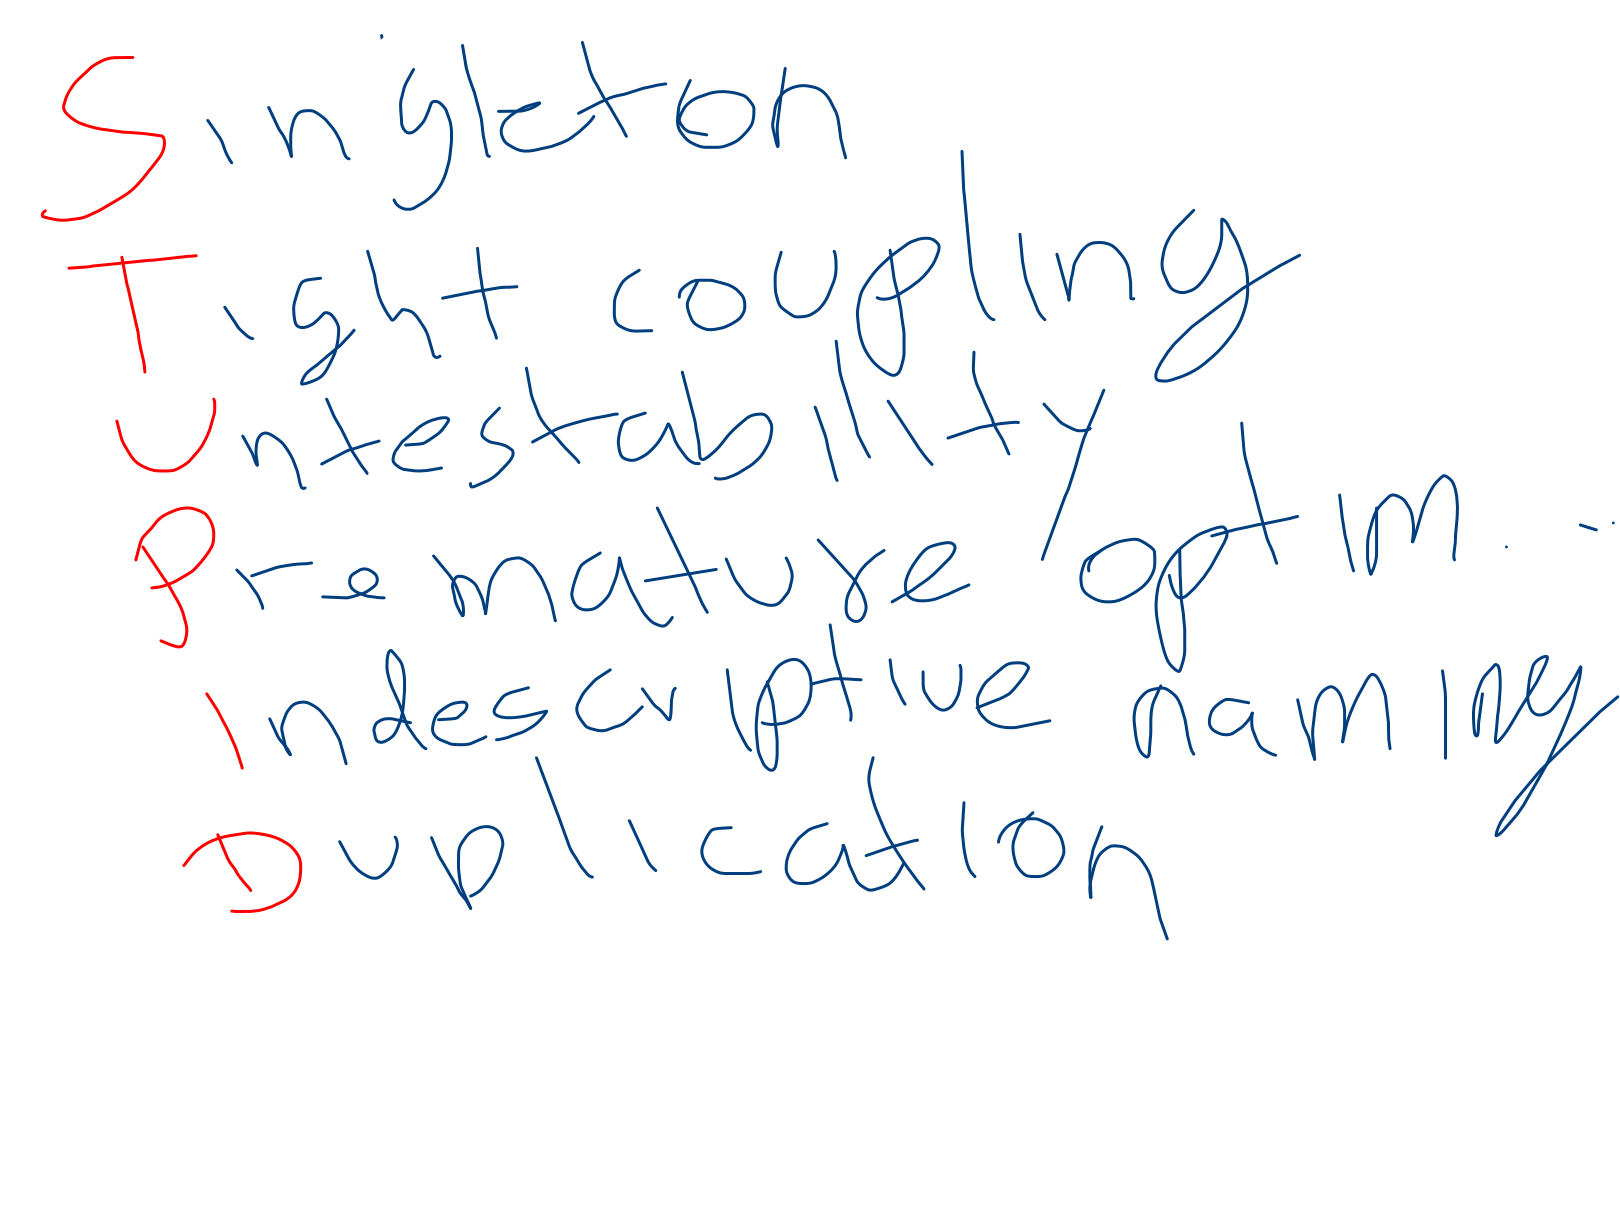 Singleton
Tight coupling
Untestability
Premature optim...
Indescriptive naming
Duplication